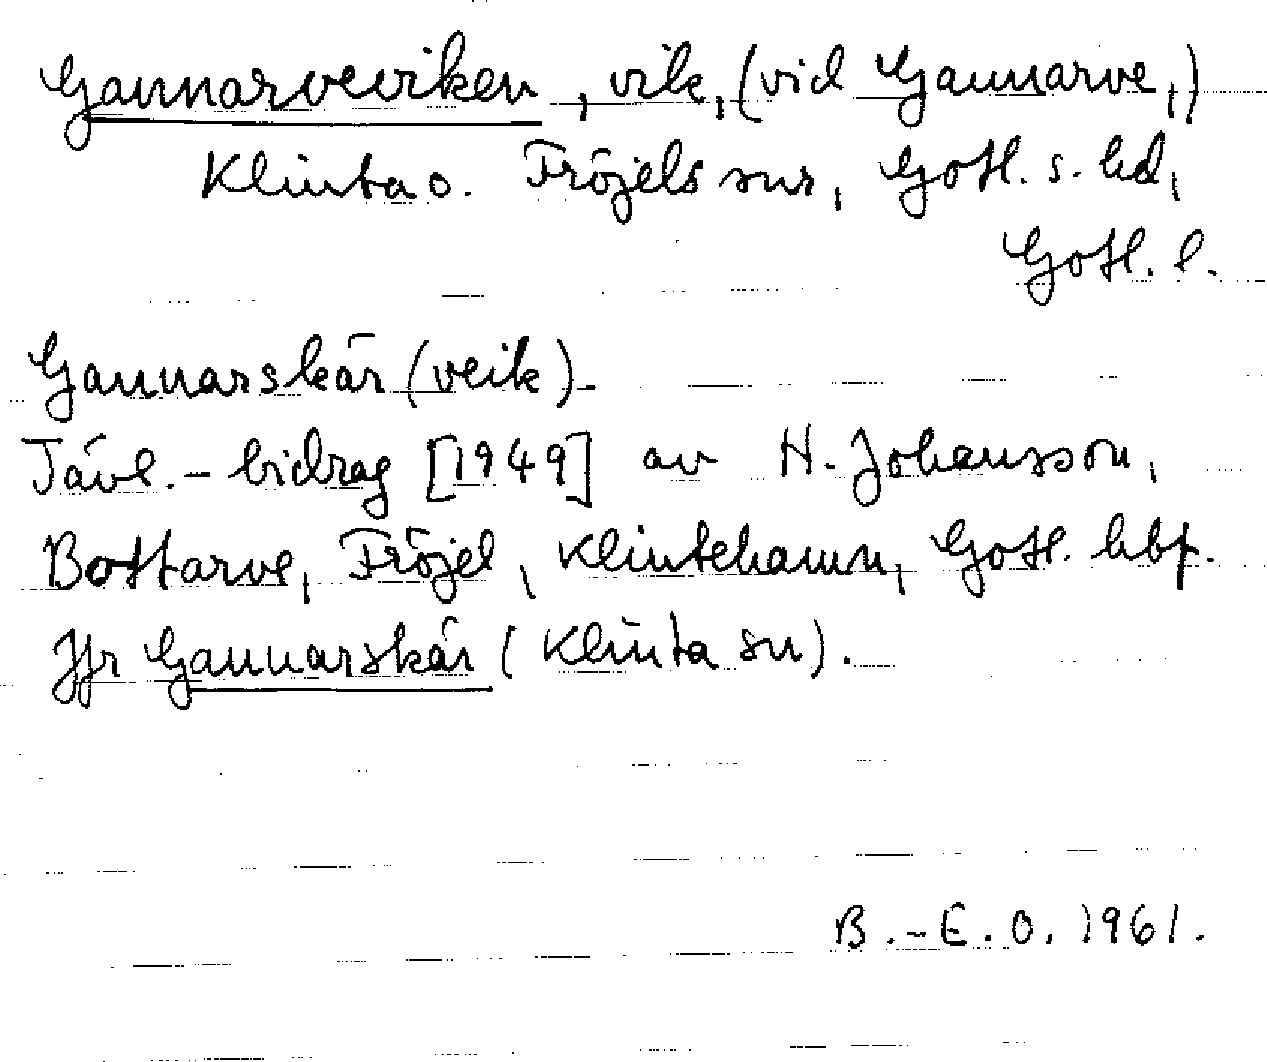 Gannarveviken, vik, (vid Gannarve,)
Klinta o. Fröjels snr, Gotl. s. hd,
Gotl. l.
Gannarskär (veik)-
Tävl.-bidrag [1949] av H. Johansson,
Bottarve, Fröjel, Klintehamn, Gotl. hbf.
Jfr Gannarskär (Klinta sn).
B.-E.O. 1961.